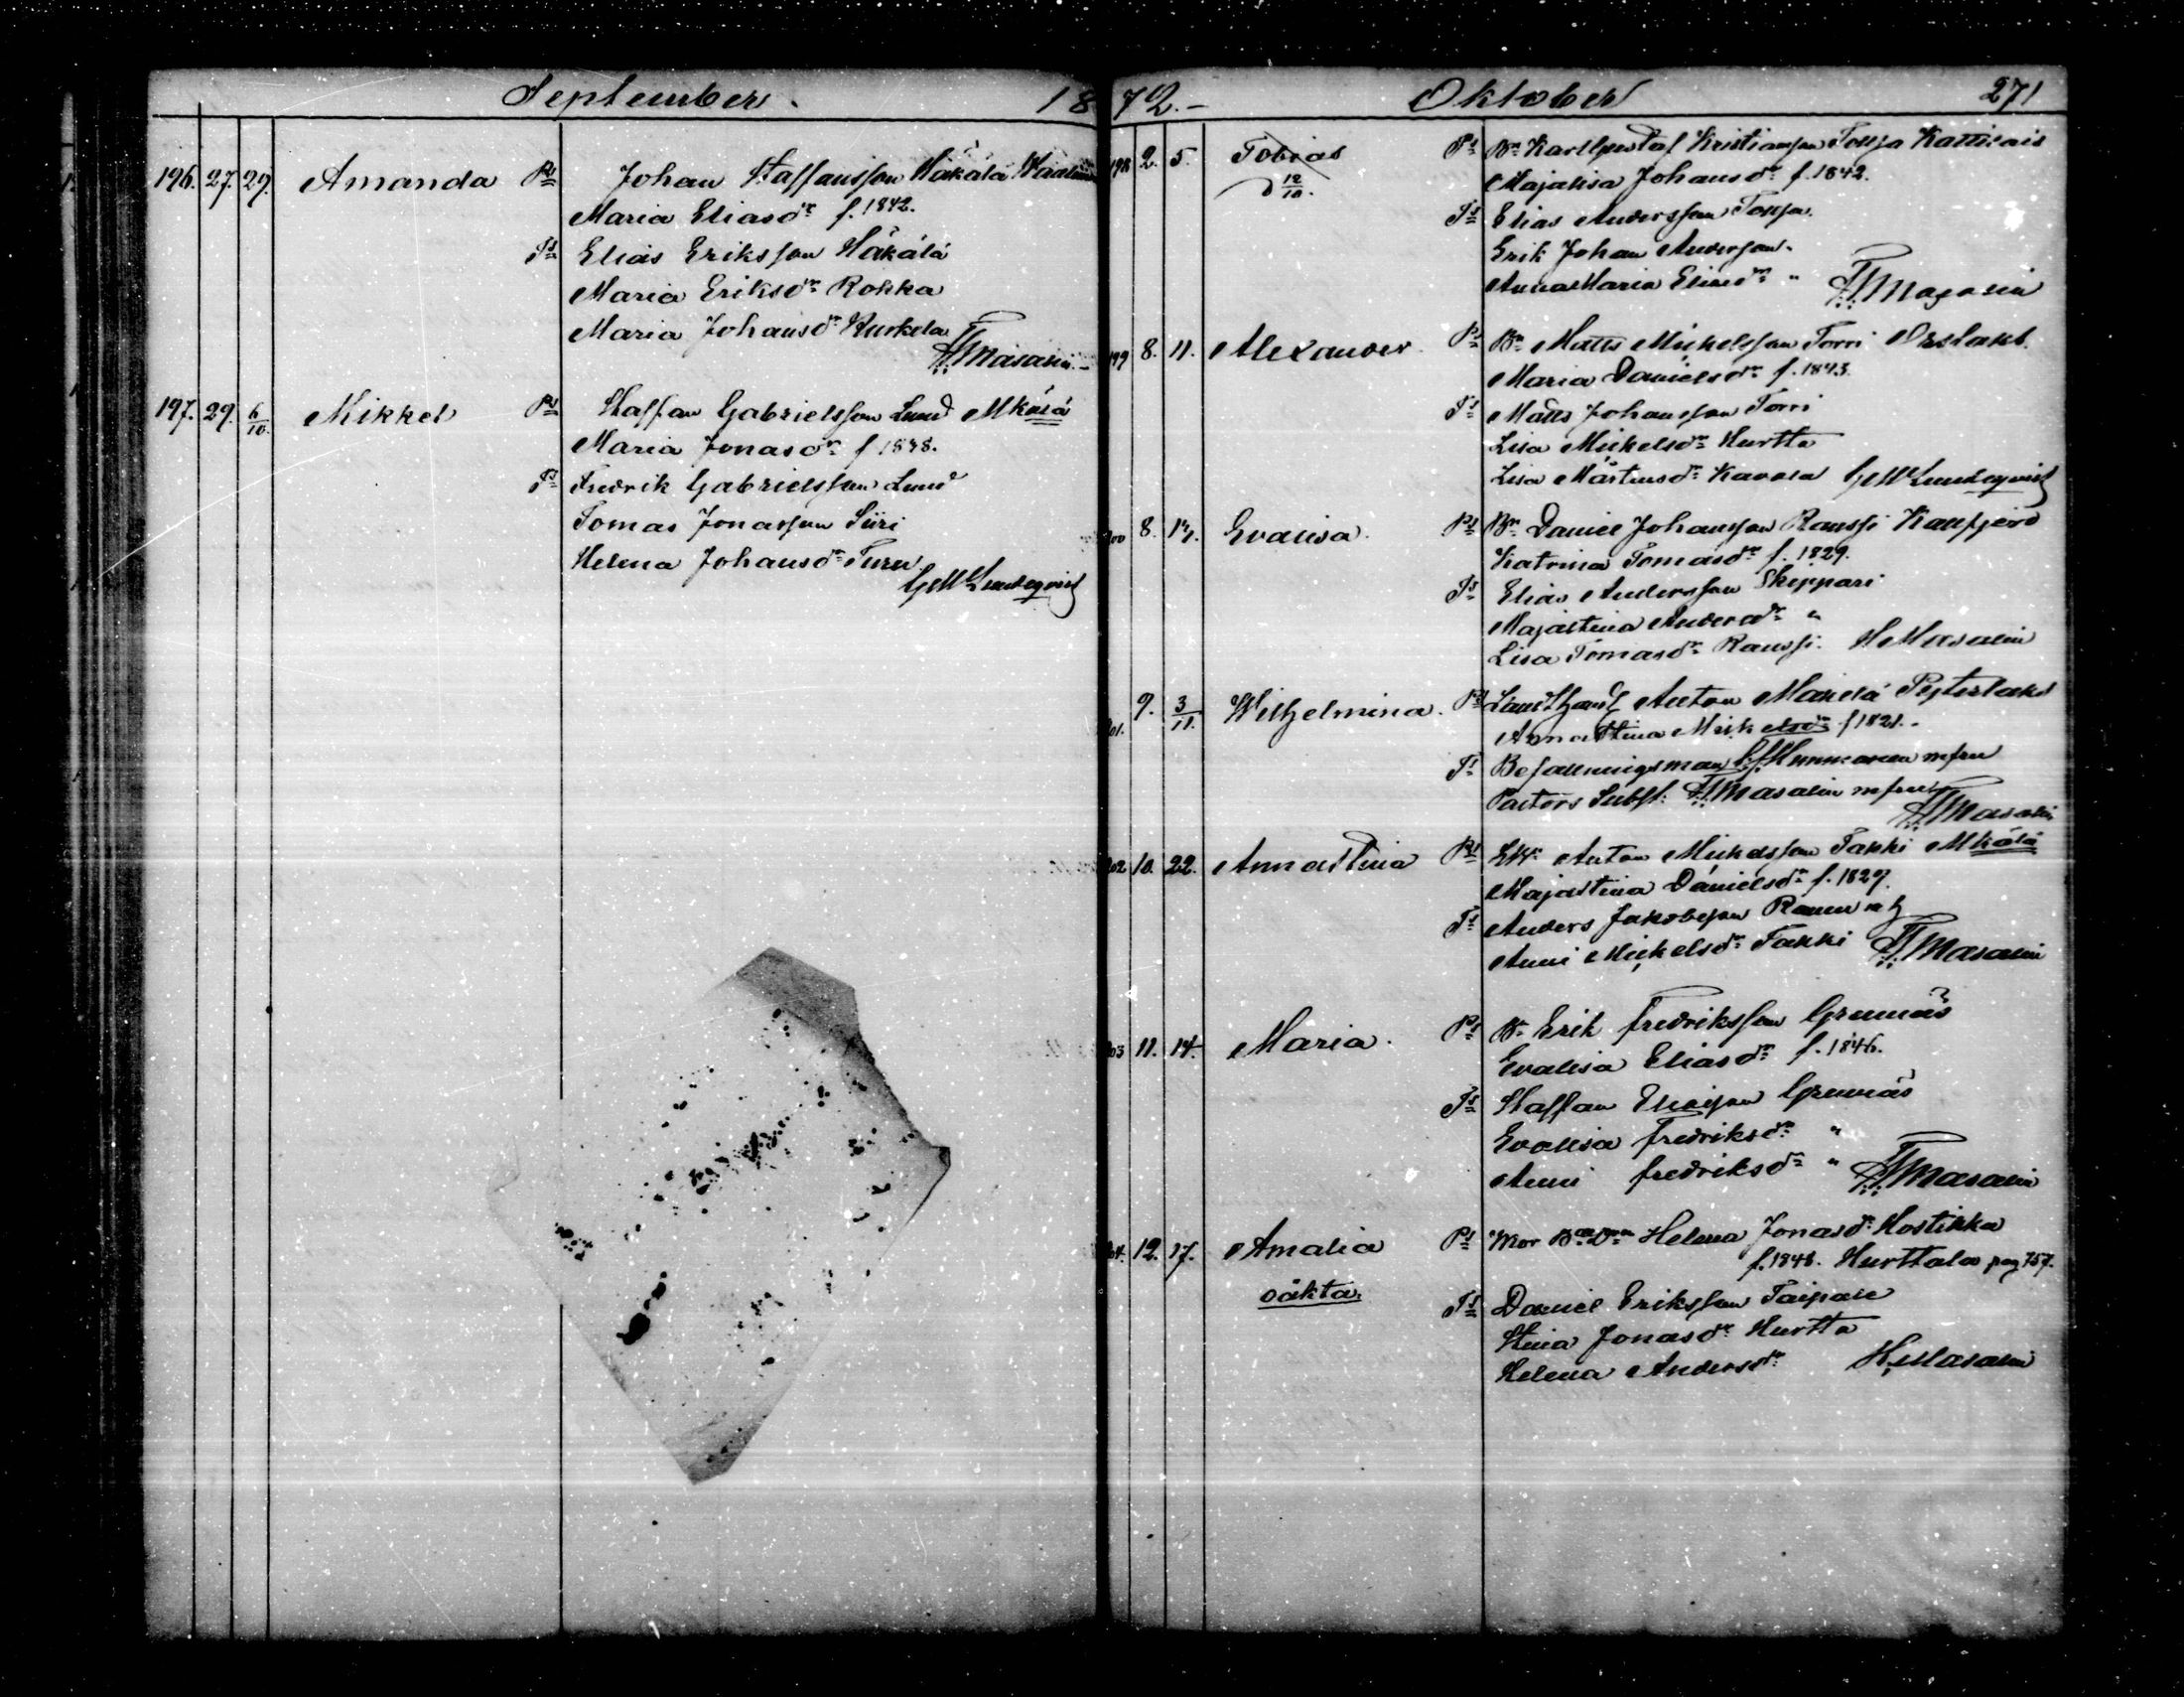 September.
196. 27. 29. Amanda Prs Johan Staffansson Häkälä
Maria Eliasdr f. 1842.
Ts Elias Eriksson Häkälä
Maria Eriksdr Rokka
Maria Johansdr Kurkela
HMasalin.
197. 29. 6/10. Mikkel Prs Staffan Gabrielsson Lund Mkälä
Maria Jonasdr f 1838.
Ts Fredrik Gabrielsson Lund
Tomas Jonasson Siiri
Helena Johansdr
Lundeqvist
1872.- Oktober 271
198 2. 5. Tobias Prs Bn Karl Gustaf Kristiansson
d 12/10. Majalisa Johansdr f. 1842.
Ts Elias Andersson
Erik Johan Andersson
Anna Maria Eliasdr "
HMasalin
199 8. 11. Alexander Prs Bn Matts Michelsson Torri Orslaks
Maria Danielsdr f. 1843.
Ts Matts Johansson Torri
Lisa Mickelsdr Hurtta
Lisa Mårtensdr Kavala Lundeqvist
200 8. 17. Evalisa. Prs Bn Daniel Johansson Ranssi
Katrina Tomasdr f. 1829.
Ts Elias Andersson Skippari
Majastina Andersdr "
Lisa Tomasdr Ranssi. HMasalin
201. 9. 3/11. Wilhelmina. Prs Anton Mäkelä Pyterlaks
Annastina Mickelsdr f 1821.-
Ts Befallningsman mfru
Pastors Subst: HMasalin mfru
HMasalin
202 10. 22. Annastina Prs Anton Mickelsson Takki Mkälä
Majastina Danielsdr f. 1829.
Ts Anders Jakobsson
Anni Mickelsdr Takki HMasalin
203 11. 14. Maria. Prs Bn Erik Fredriksson Grennäs
Evalisa Eliasdr f. 1846.
Ts Staffan Eliasson Grennäs
Evalisa Fredriksdr "
Anni Fredriksdr " HMasalin
204. 12. 17. Amalia Prs Mor Helena Jonasdr Hostikka
f. 1848. Hurttala pag 757.
oäkta. Ts Daniel Eriksson Taipale
Stina Jonasdr Hurtta
Helena Andersdr HMasalin